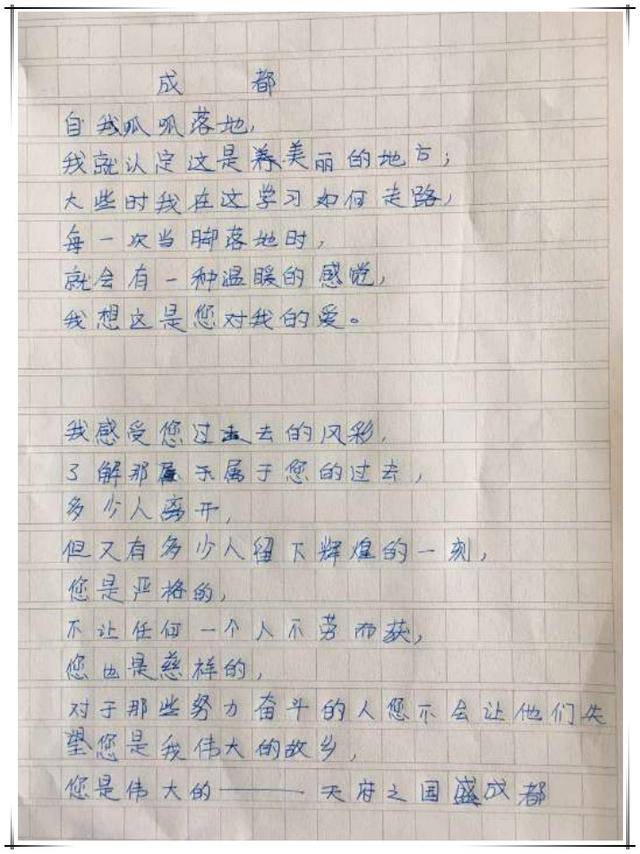 成都
自我呱呱落地，
我就认定这是养美丽的地方；
大些时我在这学习如何走路，
每一次当脚落地时，
就会有一种温暖的感觉，
我想这是您对我的爱。
我感受您过去的风彩，
了解那属于您的过去，
多少人离开，
但又有多少人留下辉煌的一刻，
您是严格的，
不让任何一个人不劳而获，
您也是慈祥的，
对于那些努力奋斗的人您不会让他们失
望您是我伟大的故乡，
您是伟大的——天府之国盛成都